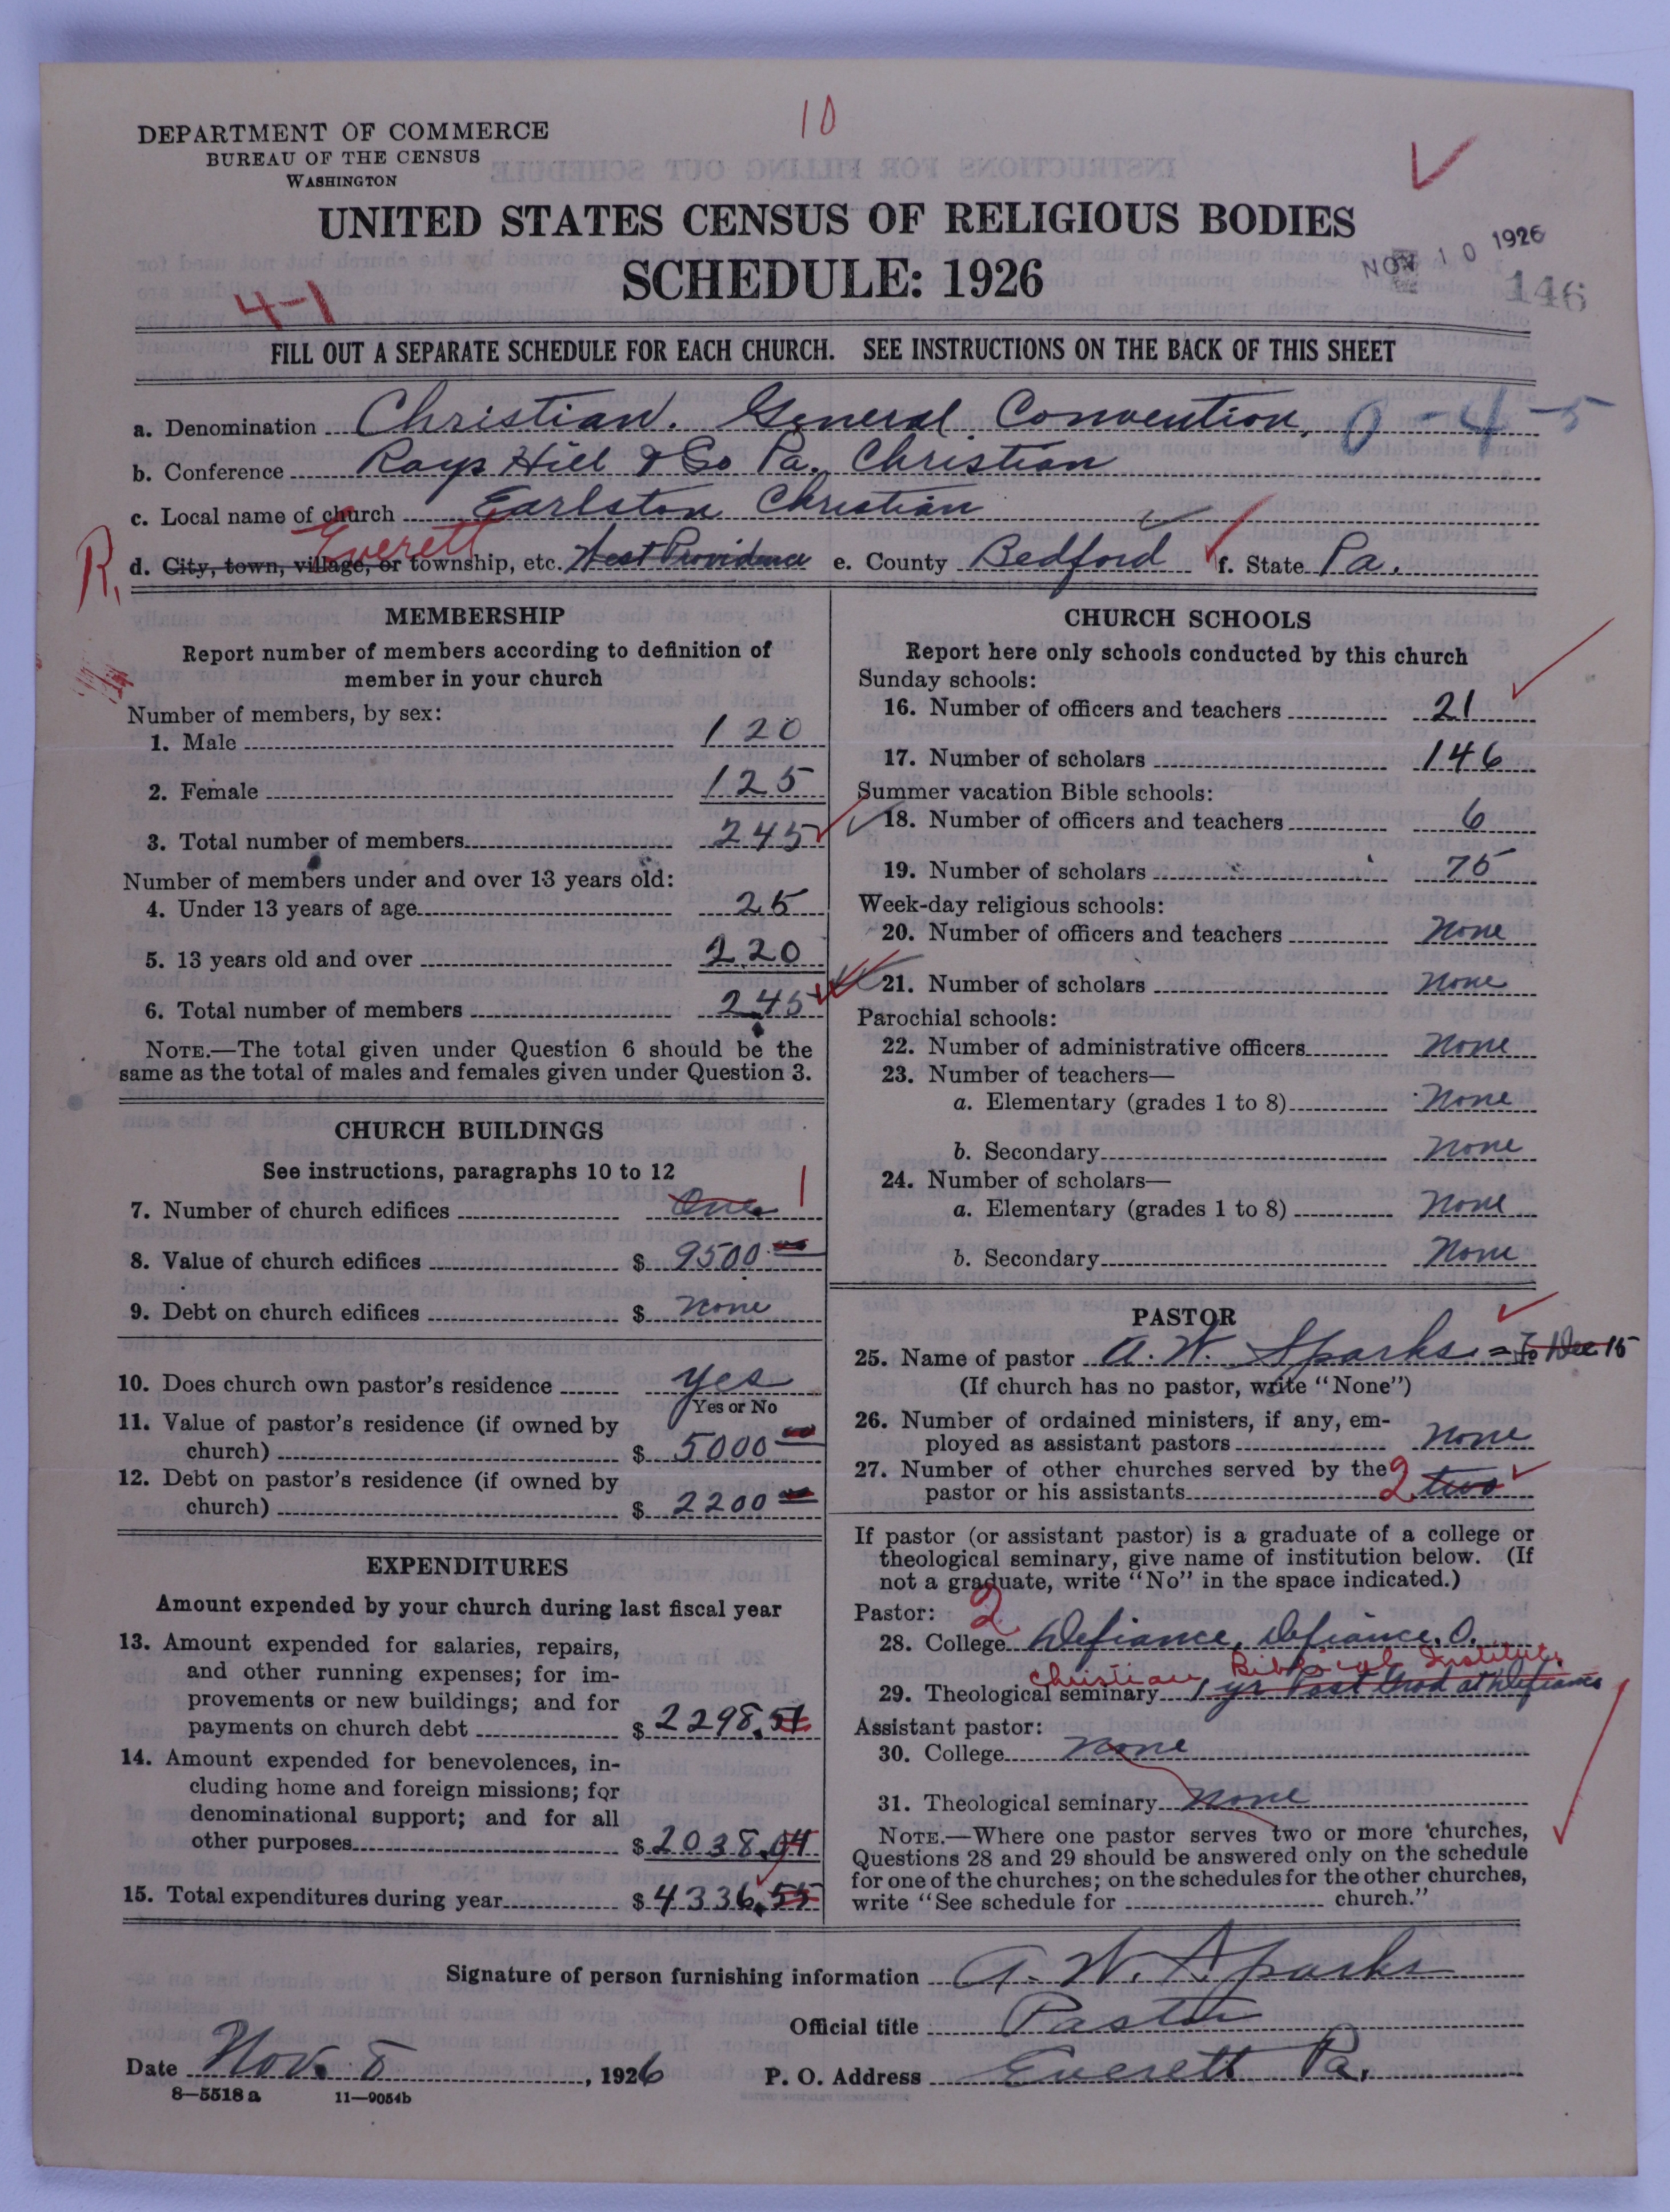 10
DEPARTMENT OF COMMERCE
BUREAU OF THE CENSUS
WASHINGTON
UNITED STATES CENSUS OF RELIGIOUS BODIES
SCHEDULE: 1926
NOV 10 1926
146
4-1
FILL OUT A SEPARATE SCHEDULE FOR EACH CHURCH. SEE INSTRUCTIONS ON THE BACK OF THIS SHEET
a. Denomination Christian. General Convention, 0-4-5
b. Conference Rays Hill & So Pa. Christian
c. Local name of church Earlston Christian
R, Everett
d. City, town, village, or township, etc. West Providence e. County Bedford f. State Pa.
MEMBERSHIP
Report number of members according to definition of
member in your church
Number of members, by sex:
1. Male 120
2. Female 125
3. Total number of members 245
Number of members under and over 13 years old:
4. Under 13 years of age 25
5. 13 years old and over 220
6. Total number of members 245
NOTE.—The total given under Question 6 should be the
same as the total of males and females given under Question 3.
CHURCH BUILDINGS
See instructions, paragraphs 10 to 12
7. Number of church edifices One 1
8. Value of church edifices $ 9500.00
9. Debt on church edifices $ none
10. Does church own pastor's residence yes
Yes or No
11. Value of pastor's residence (if owned by
church) $ 5000.00
12. Debt on pastor's residence (if owned by
church) $ 2200.00
EXPENDITURES
Amount expended by your church during last fiscal year
13. Amount expended for salaries, repairs,
and other running expenses; for im-
provements or new buildings; and for
payments on church debt $ 2298.51
14. Amount expended for benevolences, in-
cluding home and foreign missions; for
denominational support; and for all
other purposes $ 2038.04
15. Total expenditures during year $ 4336.55
CHURCH SCHOOLS
Report here only schools conducted by this church
Sunday schools:
16. Number of officers and teachers 21
17. Number of scholars 146
Summer vacation Bible schools:
18. Number of officers and teachers 6
19. Number of scholars 75
Week-day religious schools:
20. Number of officers and teachers None
21. Number of scholars None
Parochial schools:
22. Number of administrative officers None
23. Number of teachers—
a. Elementary (grades 1 to 8) None
b. Secondary None
24. Number of scholars—
a. Elementary (grades 1 to 8) None
b. Secondary None
PASTOR
25. Name of pastor A. W. Sparks = To Dec 15
(If church has no pastor, write "None")
26. Number of ordained ministers, if any, em-
ployed as assistant pastors None
27. Number of other churches served by the
pastor or his assistants 2 two
If pastor (or assistant pastor) is a graduate of a college or
theological seminary, give name of institution below. (If
not a graduate, write "No" in the space indicated.)
Pastor: 2
28. College Defiance, Defiance, O.
Christian Biblical Institute
29. Theological seminary 1 yr Post Grad at Defiance
Assistant pastor:
30. College None
31. Theological seminary None
NOTE.—Where one pastor serves two or more churches,
Questions 28 and 29 should be answered only on the schedule
for one of the churches; on the schedules for the other churches,
write "See schedule for church."
Signature of person furnishing information A. W. Sparks
Official title Pastor
Date Nov. 8, 1926 P. O. Address Everett Pa.
8—5518 a 11—9054b